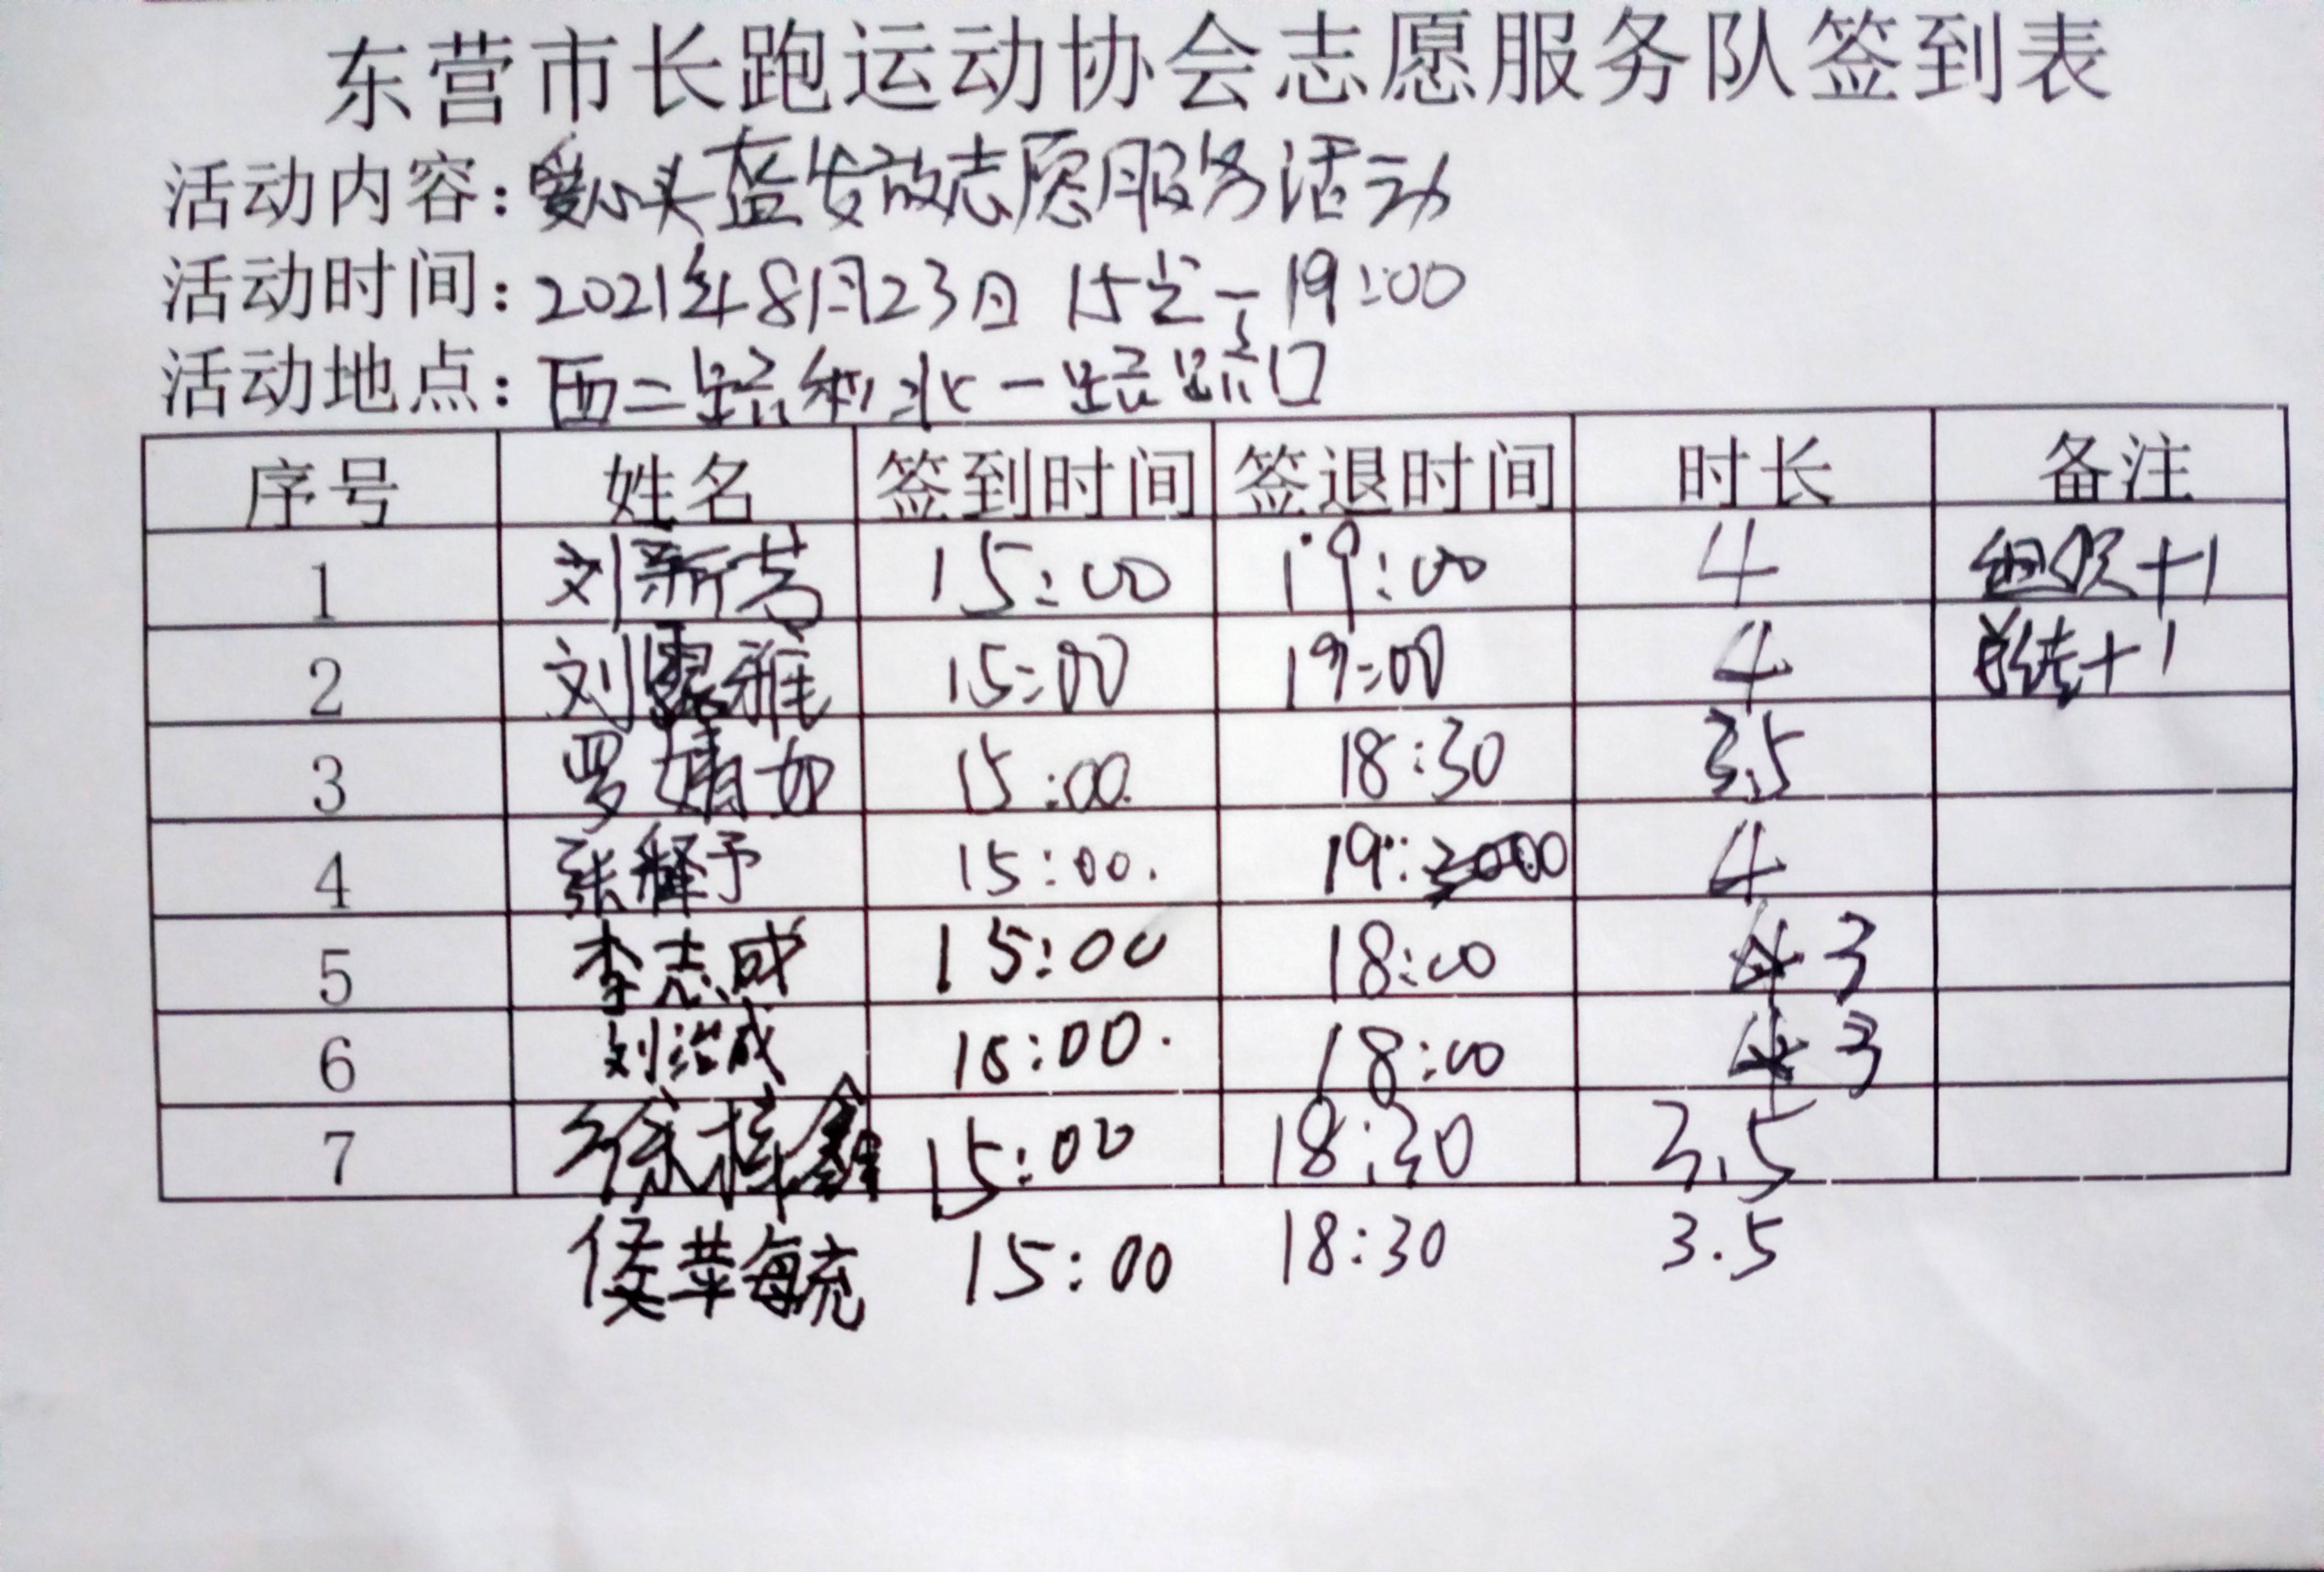 东营市长跑运动协会志愿服务队签到表
活动内容：爱心头盔发放志愿服务活动
活动时间：2021年8月23日 15:00-19:00
活动地点：西二路和北一路路口
序号 姓名 签到时间 签退时间 时长 备注
1 刘新芳 15:00 19:00 4 组织+1
2 刘 雅 15:00 19:00 4 总结+1
3 罗婧如 15:00 18:30 3.5
4 张释予 15:00 19:00 4
5 李志成 15:00 18:00 3
6 刘治成 15:00 18:00 3
7 徐梓鑫 15:00 18:30 3.5
侯苹毓 15:00 18:30 3.5